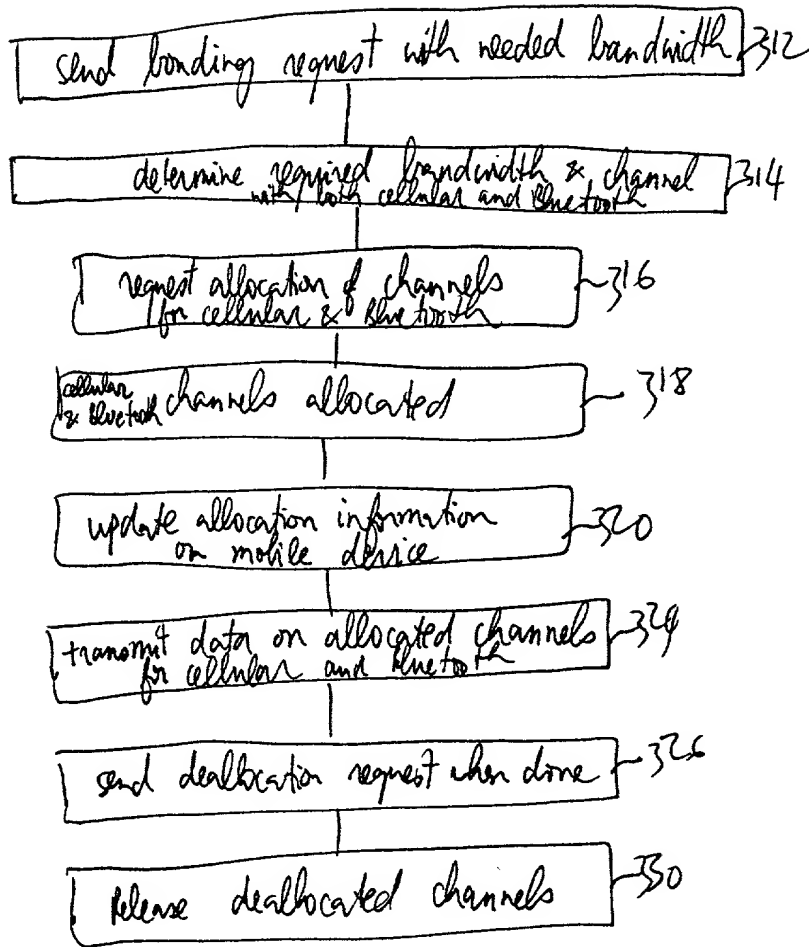 send bonding request with needed bandwidth 312
determine required bandwidth & channel 314
with both cellular and Bluetooth
request allocation of channels 316
for cellular & Bluetooth
cellular
& Bluetooth channels allocated 318
update allocation information 320
on mobile device
transmit data on allocated channels 324
for cellular and Bluetooth
send deallocation request when done 326
Release deallocated channels 330